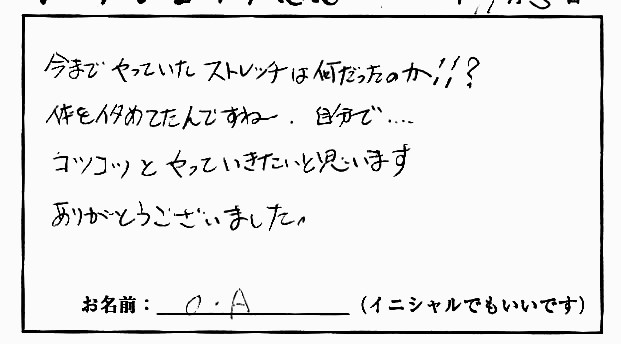 今までやっていたストレッチは何だったのか!!?
体を傷めてたんですねー.自分で....
コツコツとやっていきたいと思います
ありがとうございました。
お名前:O.A(イニシャルでもいいです)